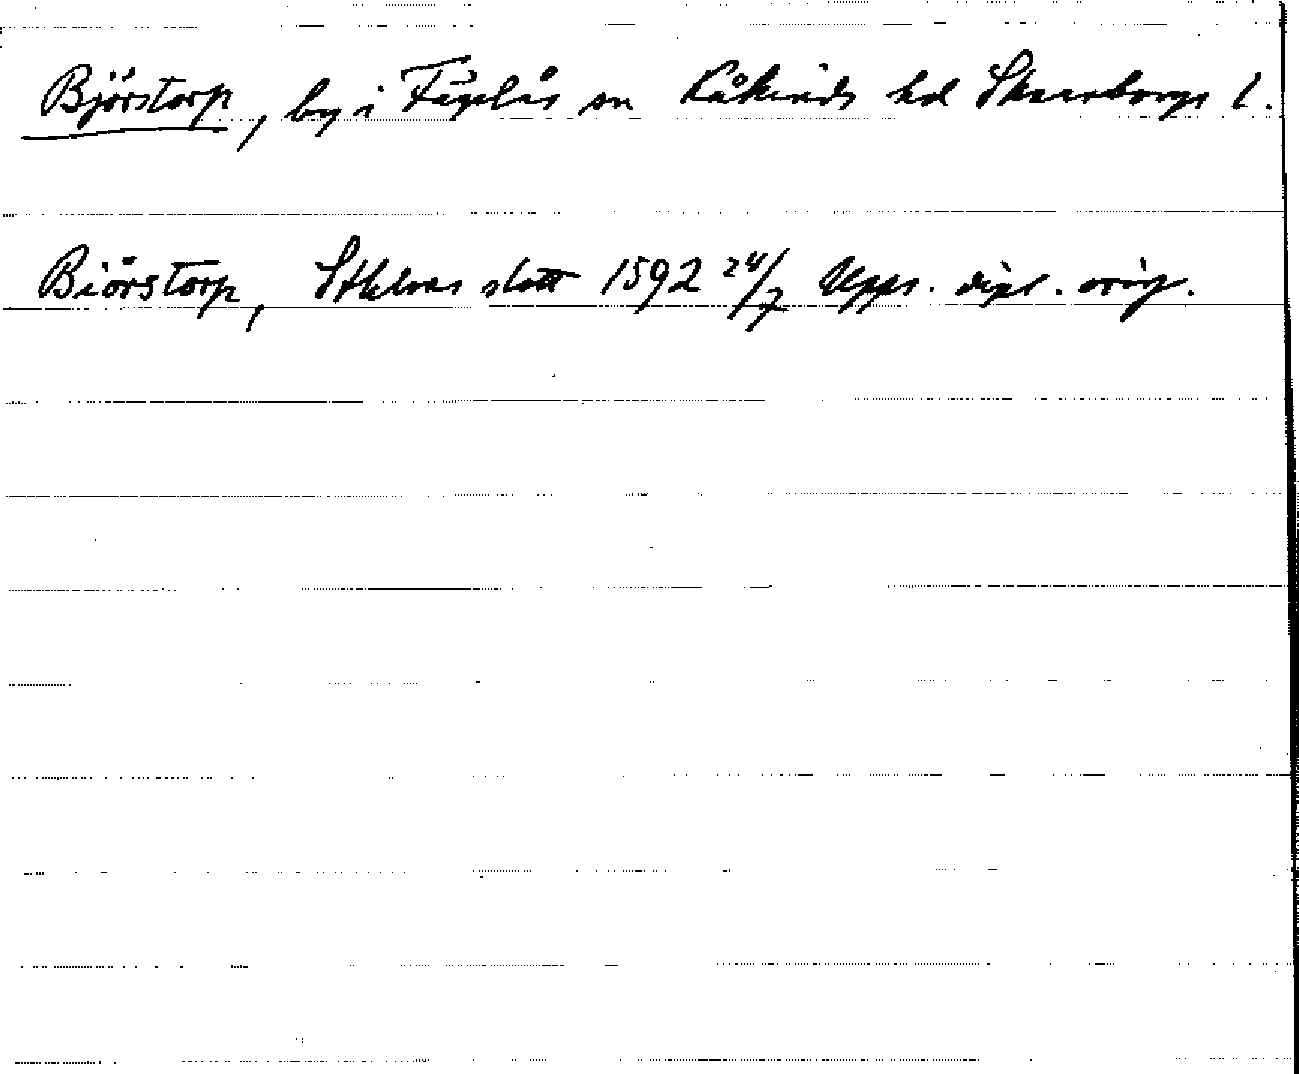 Björstorp, by i Fågelås sn Kåkinds hd Skaraborgs l.
Biörstorp, Sthlms slott 1592 24/7 Upps. dipl. orig.